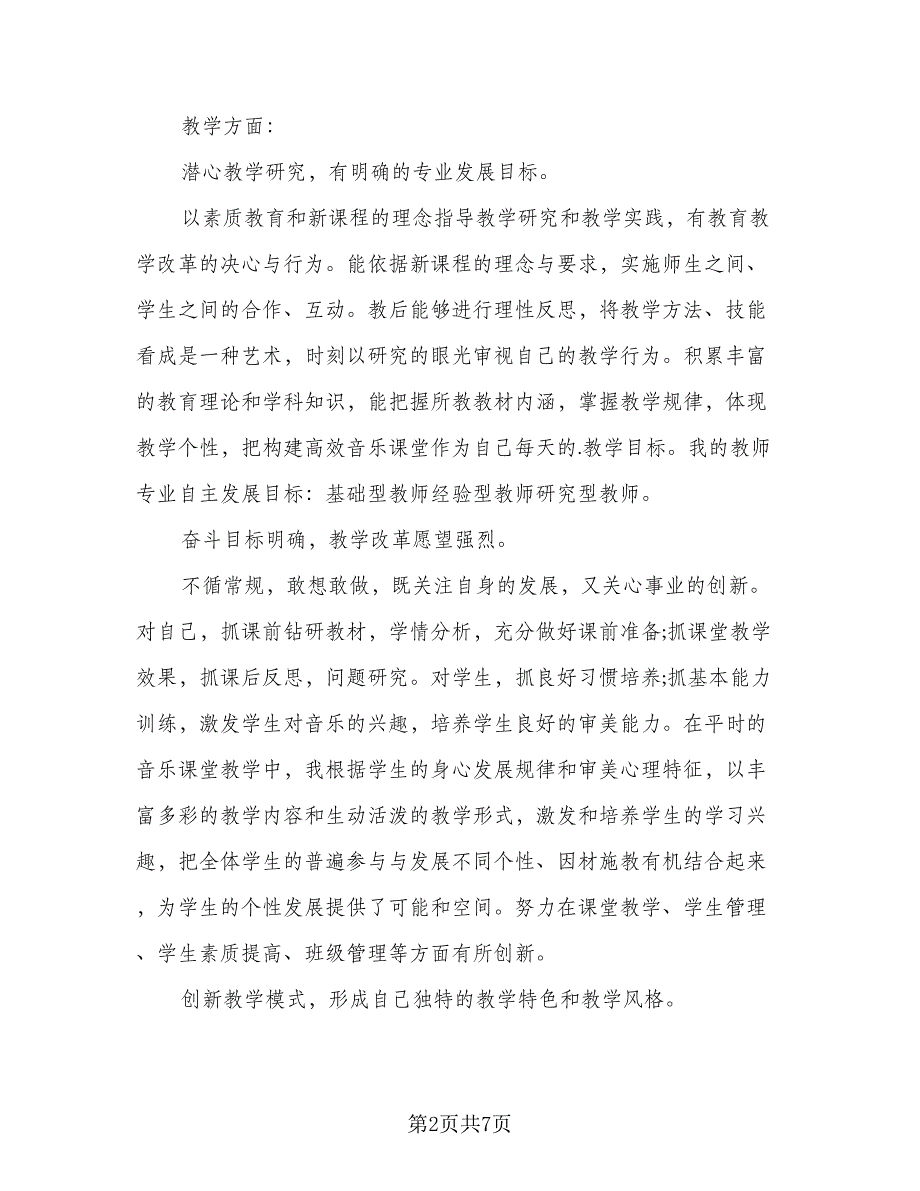 教学方面：
潜心教学研究，有明确的专业发展目标。
以素质教育和新课程的理念指导教学研究和教学实践，有教育教
学改革的决心与行为。能依据新课程的理念与要求，实施师生之间、
学生之间的合作、互动。教后能够进行理性反思，将教学方法、技能
看成是一种艺术，时刻以研究的眼光审视自己的教学行为。积累丰富
的教育理论和学科知识，能把握所教教材内涵，掌握教学规律，体现
教学个性，把构建高效音乐课堂作为自己每天的.教学目标。我的教师
专业自主发展目标：基础型教师经验型教师研究型教师。
奋斗目标明确，教学改革愿望强烈。
不循常规，敢想敢做，既关注自身的发展，又关心事业的创新。
对自己，抓课前钻研教材，学情分析，充分做好课前准备;抓课堂教学
效果，抓课后反思，问题研究。对学生，抓良好习惯培养;抓基本能力
训练，激发学生对音乐的兴趣，培养学生良好的审美能力。在平时的
音乐课堂教学中，我根据学生的身心发展规律和审美心理特征，以丰
富多彩的教学内容和生动活泼的教学形式，激发和培养学生的学习兴
趣，把全体学生的普遍参与与发展不同个性、因材施教有机结合起来
，为学生的个性发展提供了可能和空间。努力在课堂教学、学生管理
、学生素质提高、班级管理等方面有所创新。
创新教学模式，形成自己独特的教学特色和教学风格。
第2页共7页